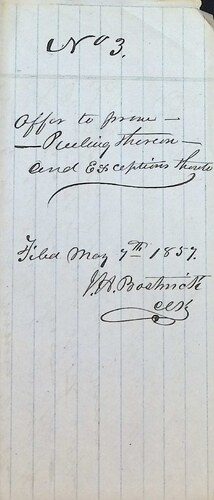 No 3.
Offer to prove —
— Ruling thereon —
and Exceptions thereto
Filed May 7th 1857.
J. A. Bostwick
Clk